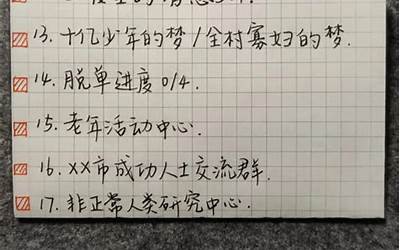 13. 十亿少年的梦/全村寡妇的梦.
14. 脱单进度 0/4.
15. 老年活动中心.
16. XX市成功人士交流群.
17. 非正常人类研究中心.